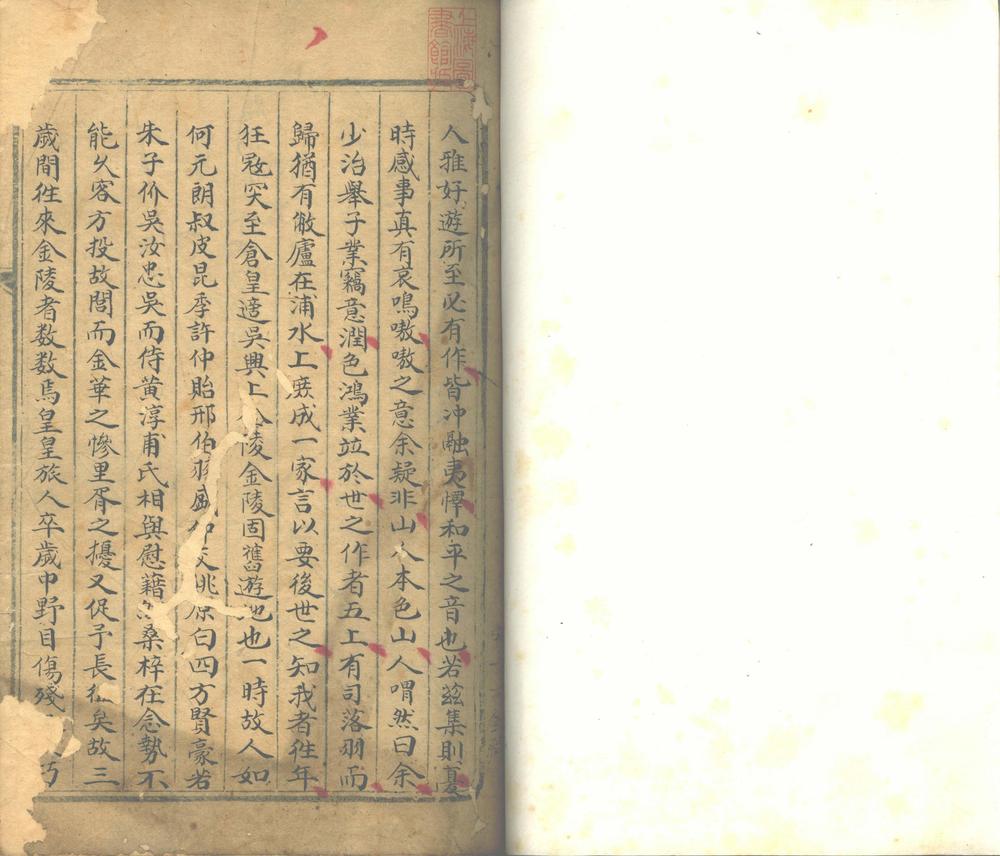 人雅好遊所至必有作皆冲融夷懌和平之音也若茲集則夏
時感事真有哀鳴嗷嗷之意余疑非山人本色山人喟然曰余
少治舉子業竊意潤色鴻業竝於世之作者五上有司落羽而
歸猶有敝廬在浦水上庶成一家言以要後世之知我者徃年
狂寇突至倉皇適吳興上陵金陵固舊遊地也一時故人如
何元朗叔皮昆季許仲貽邢伯羽盛仲交姚原白四方賢豪若
朱子价吳汝忠吳而侍黄淳甫氏相與慰藉桑梓在念勢不
能久客方投故閭而金華之慘里胥之擾又促予長徃矣故三
歲間徃來金陵者数数焉皇皇旅人卒歲中野目傷殘巧
上海圖書館藏